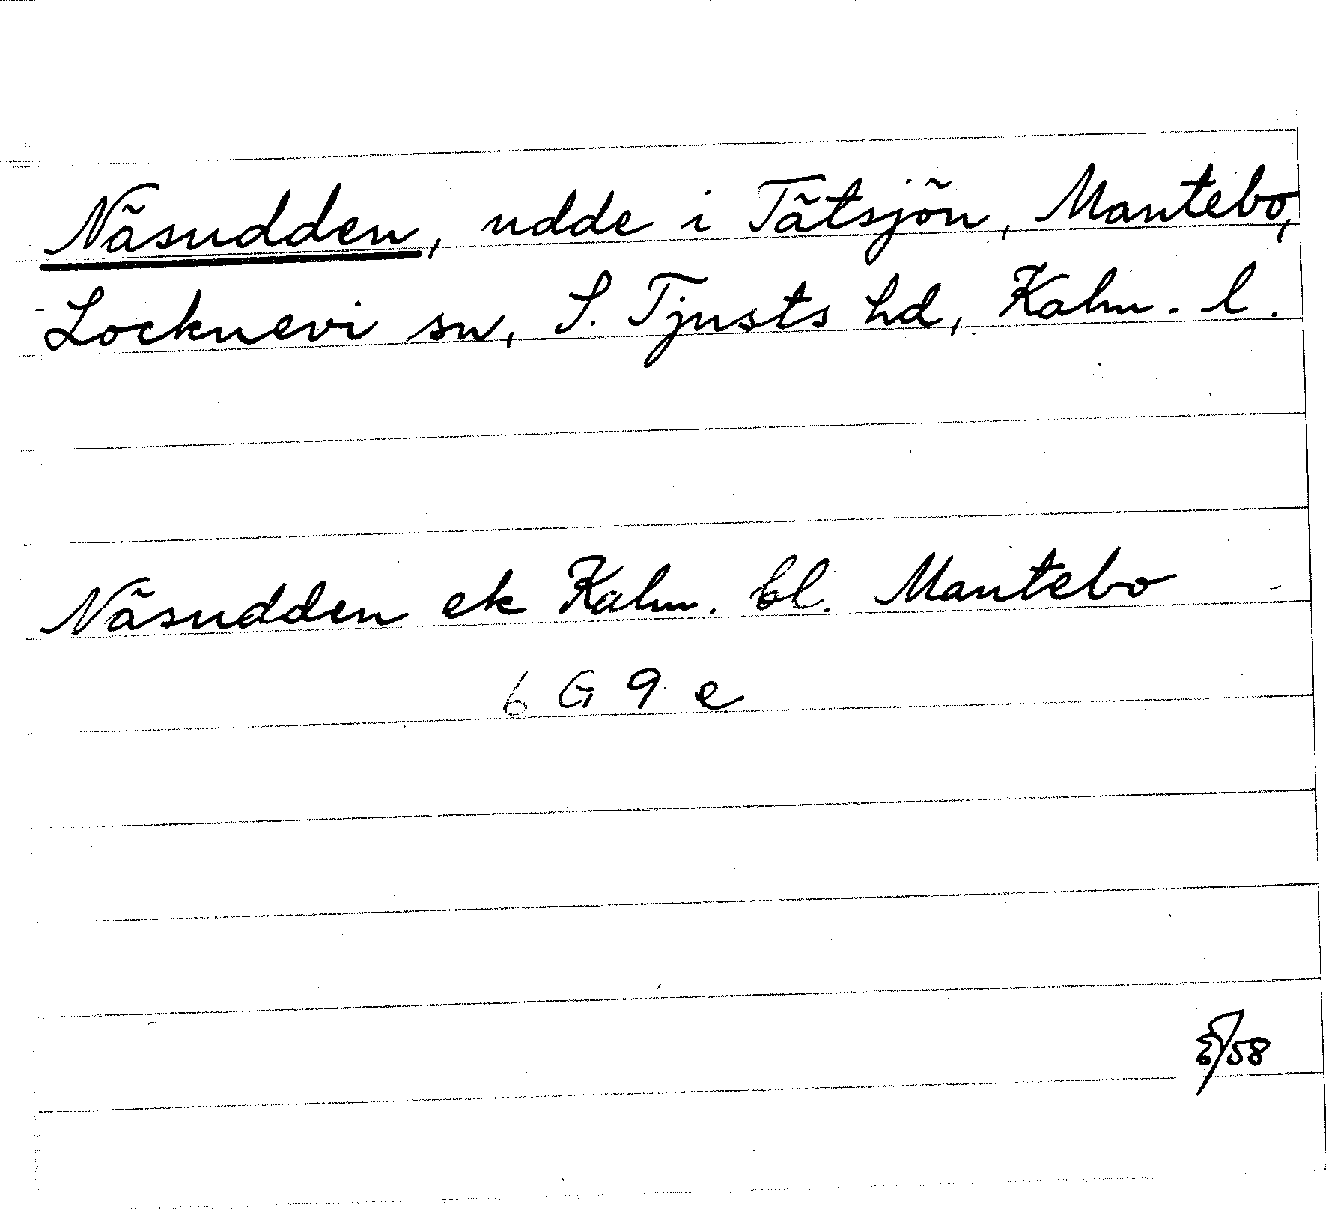 Näsudden, udde i Tätsjön, Mantebo,
Locknevi sn, S. Tjusts hd, Kalm. l.
Näsudden ek Kalm. bl. Mantebo
6 G 9 e
/58